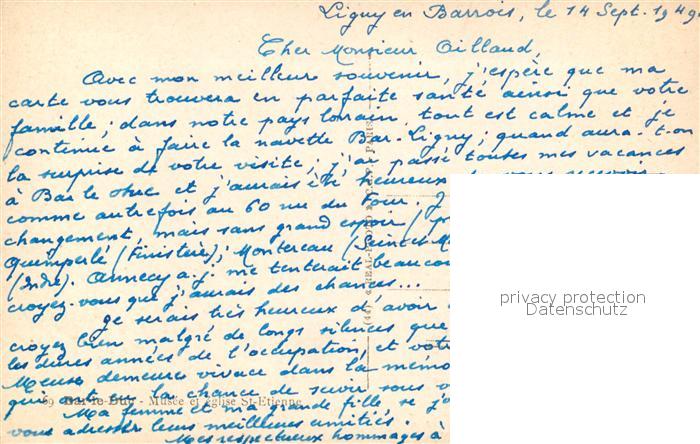 Ligny en Barrois, le 14 Sept. 1949.
Cher Monsieur Oillaud,
Avec mon meilleur souvenir, j'espère que ma
carte vous trouvera en parfaite santé ainsi que votre
famille; dans notre pays lorrain tout est calme et je
continue à faire la navette Bar-Ligny; quand aura-t-on
la surprise de votre visite; j'ai passé toutes mes vacances
à Bar le Duc et j'aurais été heureux
comme autrefois au 60 rue du Four. J
changement, mais sans grand espoir
Quimperlé (Finistère); Montereau (Seine et M
(Indre). Annecy a.j. me tenterait beauco
croyez-vous que j'aurais des chances...
Je serais très heureux d'avoir
croyez bien malgré de longs silences que
les dures années de l'occupation, et vot
Meuse demeure vivace dans la mémo
qui ont eu la chance de servir sous v
69 Bar-le-Duc - Musée et église St-Etienne
Ma femme et ma grande fille se j
vous adresser leurs meilleures amitiés.
Mes respectueux hommages à
privacy protection
Datenschutz